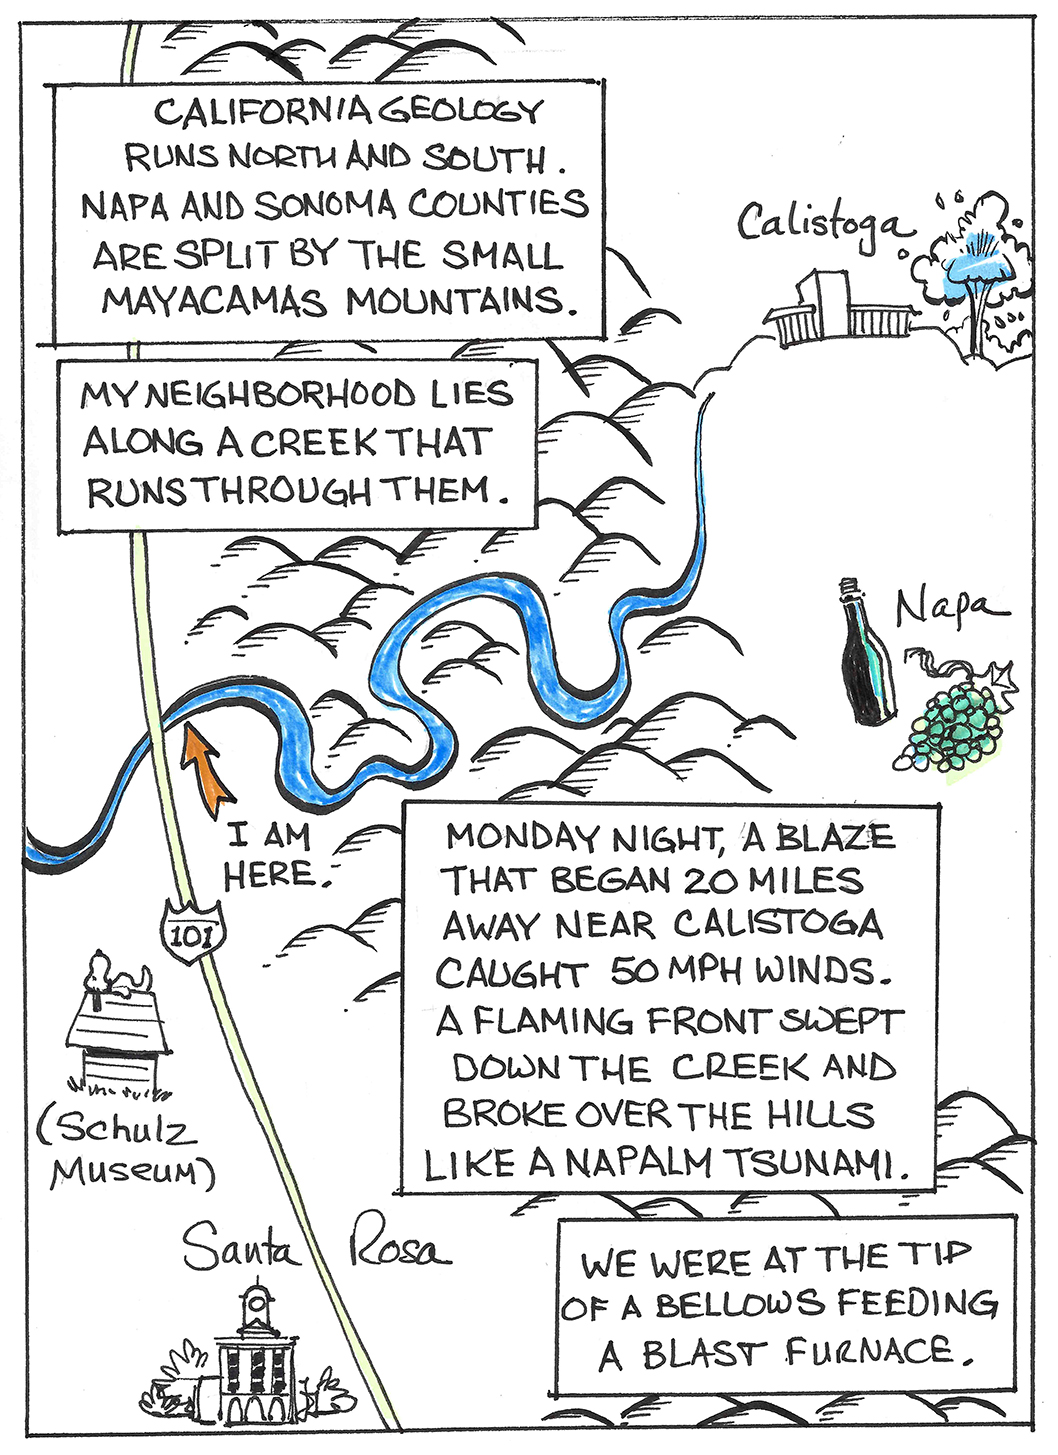 CALIFORNIA GEOLOGY
RUNS NORTH AND SOUTH.
NAPA AND SONOMA COUNTIES
ARE SPLIT BY THE SMALL
MAYACAMAS MOUNTAINS.
Calistoga
MY NEIGHBORHOOD LIES
ALONG A CREEK THAT
RUNS THROUGH THEM.
Napa
I AM
HERE.
101
MONDAY NIGHT, A BLAZE
THAT BEGAN 20 MILES
AWAY NEAR CALISTOGA
CAUGHT 50 MPH WINDS.
A FLAMING FRONT SWEPT
DOWN THE CREEK AND
BROKE OVER THE HILLS
LIKE A NAPALM TSUNAMI.
(Schulz
Museum)
Santa Rosa
WE WERE AT THE TIP
OF A BELLOWS FEEDING
A BLAST FURNACE.